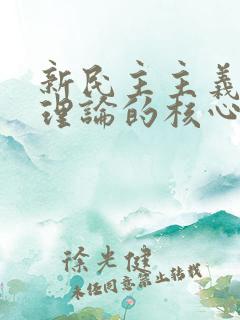 新民主主義
理論的核心
徐光健
未经同意禁止转载